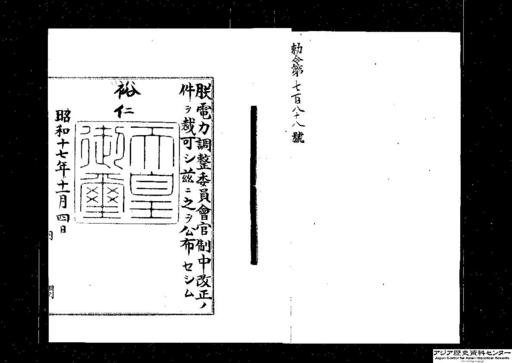 勅令第七百八十八號
朕電力調整委員會官制中改正ノ
件ヲ裁可シ茲ニ之ヲ公布セシム
裕仁
天皇
御璽
昭和十七年十一月四日
内閣
アジア歴史資料センター
Japan Center for Asian Historical Records